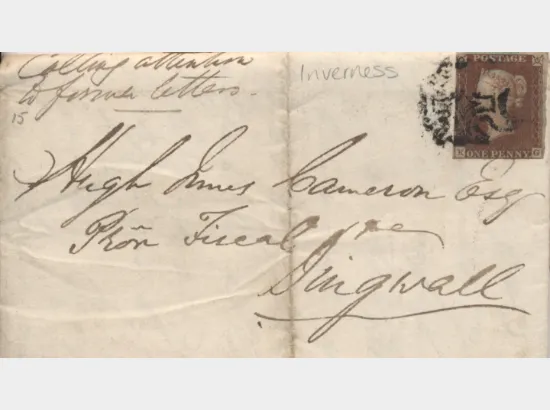 Calling attention
to former letters.
15
Inverness
POSTAGE
ONE PENNY
Hugh Innes Cameron Esq
Pròn Fiscal &c
Dingwall